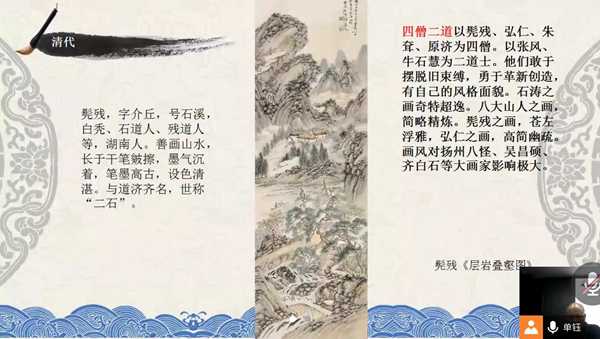 清代
髡残，字介丘，号石溪，
白秃、石道人、残道人
等，湖南人。善画山水，
长于干笔皴擦，墨气沉
着，笔墨高古，设色清
湛。与道济齐名，世称
“二石”。
四僧二道以髡残、弘仁、朱
耷、原济为四僧。以张风、
牛石慧为二道士。他们敢于
摆脱旧束缚，勇于革新创造，
有自己的风格面貌。石涛之
画奇特超逸。八大山人之画，
简略精炼。髡残之画，苍左
浮雅，弘仁之画，高简幽疏。
画风对扬州八怪、吴昌硕、
齐白石等大画家影响极大。
髡残《层岩叠壑图》
单钰